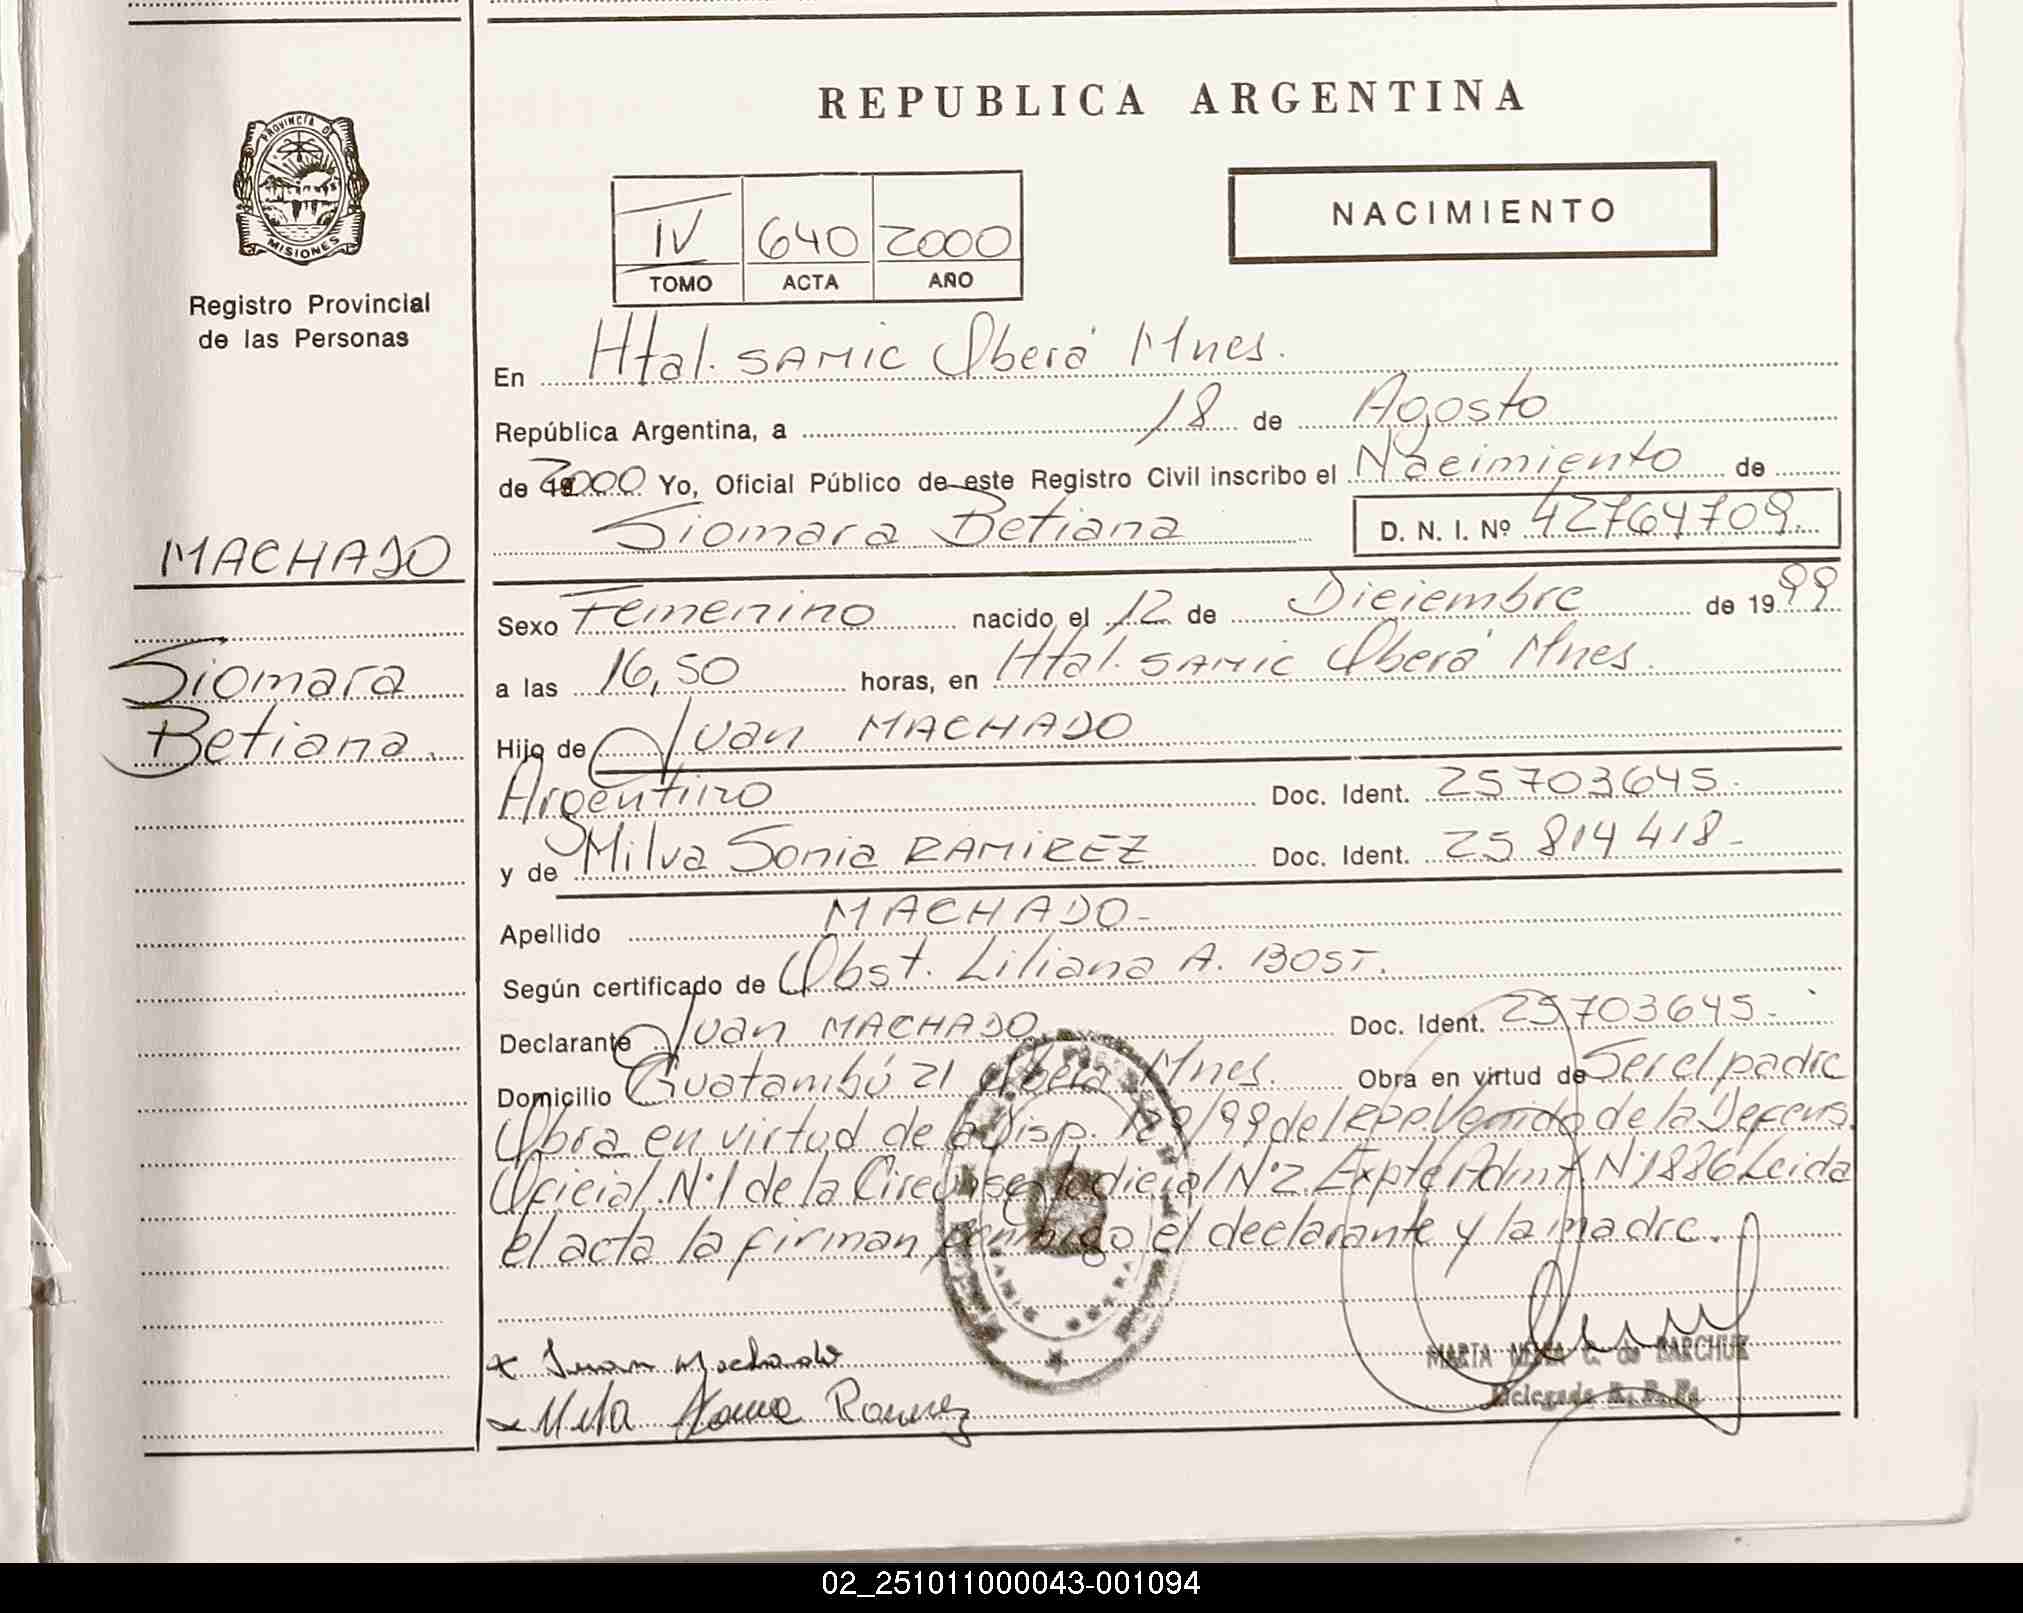 REPUBLICA ARGENTINA
PROVINCIA DE
MISIONES
Registro Provincial
de las Personas
NACIMIENTO
IV 640 2000
TOMO ACTA AÑO
En Htal. SAMIC Oberá Mnes.
República Argentina, a 18 de Agosto
de 2000 Yo, Oficial Público de este Registro Civil inscribo el Nacimiento de
Siomara Betiana D. N. I. Nº 42764709.
MACHADO
Siomara
Betiana.
Sexo Femenino nacido el 12 de Diciembre de 1999
a las 16,50 horas, en Htal. SAMIC Oberá Mnes.
Hijo de Juan MACHADO
Argentino Doc. Ident. 25703645.
y de Milva Sonia RAMIREZ Doc. Ident. 25 814 418-
Apellido MACHADO-
Según certificado de Obst. Liliana A. BOST.
Declarante Juan MACHADO Doc. Ident. 25703645.-
Domicilio Guatambú 21 Oberá Mnes. Obra en virtud de Ser el padre
Obra en virtud de la Disp. /99 del RPP. Venido de la Defens.
Oficial Nº1 de la Circunsc. Judicial Nº2 Expte Admt. Nº1886 Leida
el acta la firman conmigo el declarante y la madre.
x Juan Machado
Ramirez
MARTA C. de BARCHUK
Delegada R. P. P.
02_251011000043-001094